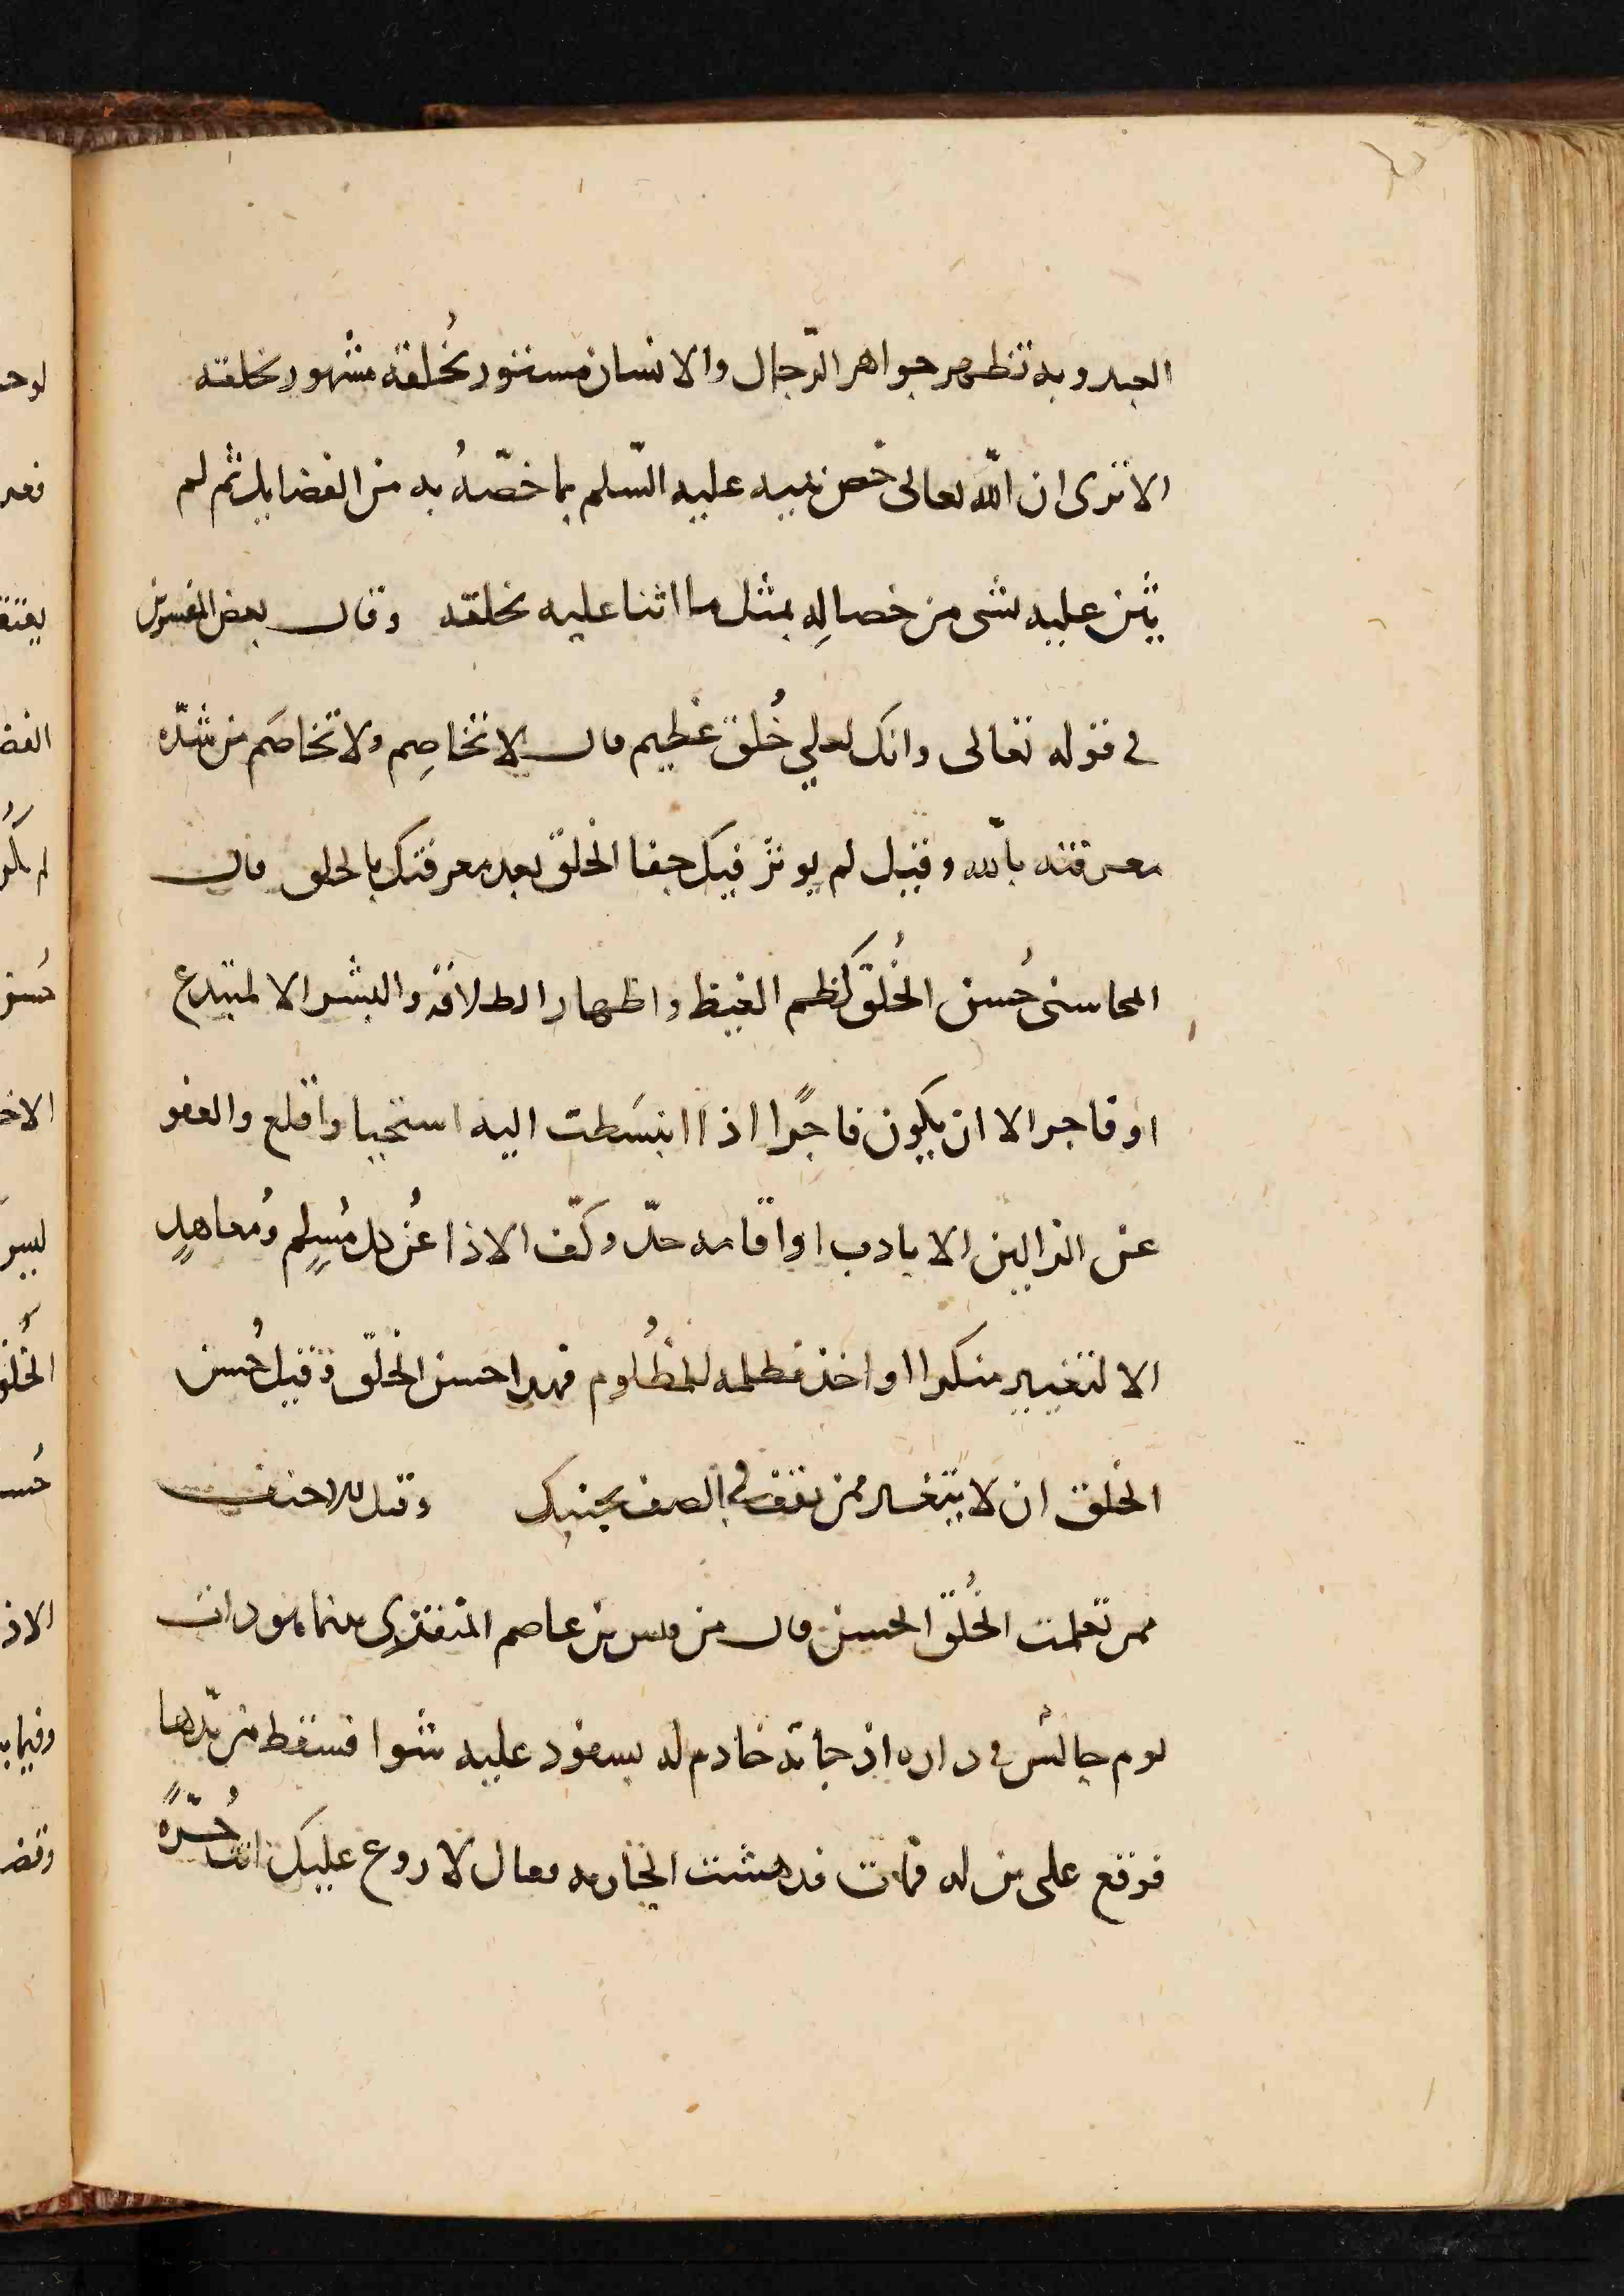 العبد وبه تظهر جواهر الرّجال والانسان مستور بخُلقه مشهور بخلقه
الا ترى ان اللّه تعالى خص نبيه عليه السّلم بما خصّهُ به من الفضايل ثم لم
يثن عليه بشى من خصالِه بمثل ما اثنا عليه بخلقه وقال بعض المفسرين
في قوله تعالى وانك لعلي خُلق عظيم قال لا تخاصِم ولا تخاصَم من شدّه
معرفته بالله وقيل لم يوثر فيك جفا الخلق بعد معرفتك بالحلق قال
المحاسبى حُسن الخُلق كظم الغيظ واظهار الطلاقه والبشر الا لمبتدع
او فاجر الا ان يكون فاجرًا اذا انبسَطت اليه استحيا واقلع والعفو
عن الزالين الا بادب او اقامه حدّ وكفّ الاذا عن كل مُسلِمٍ ومُعاهدٍ
الا لتغيير منكرا او اخذ مظلمه لمظُلوم فهدا حسن الخُلق وقيل حُسن
الخلق ان لا يتغير ممن يقف في الصف بجنبك وقيل للاحنف
ممن تعلمت الخُلق الحسن قال من قيس بن عاصم المنقري بينما هو ذات
يوم جالس في داره اذ جاته خادم له بسفود عليه شوا فسقط من يدها
فوقع على بن له فمات فدهشت الجاريه فقال لا روع عليك انت حُرّهً